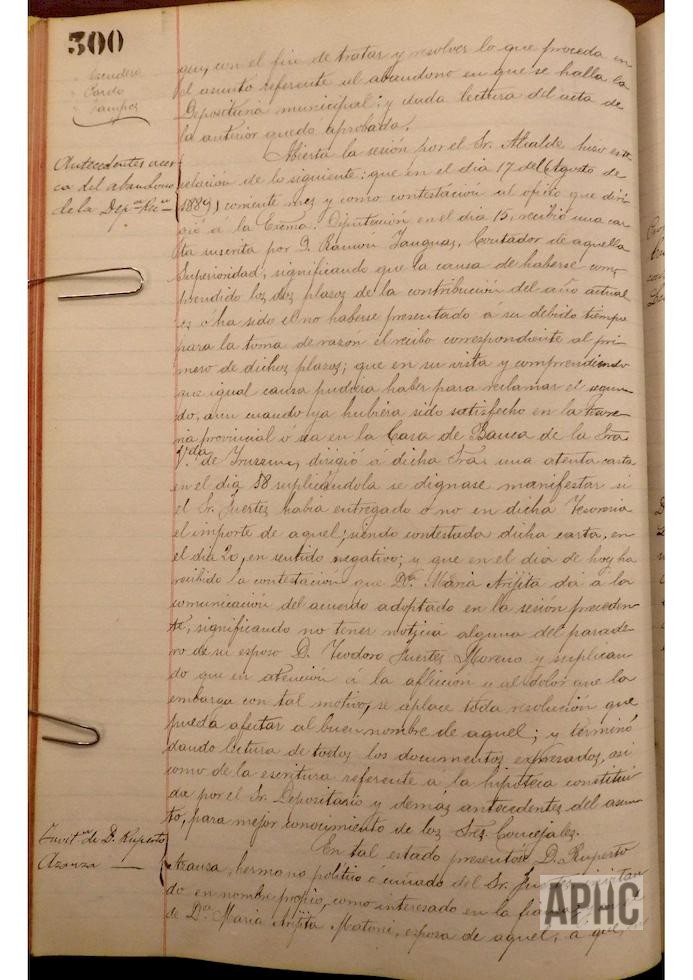 300
Escudero
Pardo
Campos
que, con el fin de tratar y resolver lo que proceda en
el asunto referente al abandono en que se halla la
Depositaria municipal; y dada lectura del acta de
la anterior quedó aprobada.
Antecedentes acer-
ca del abandono
de la Dep.
Abierta la sesión por el Sr. Alcalde hizo
relación de lo siguiente; que en el dia 17 del Agosto de
(1889) corriente mes y como contestación al oficio que diri-
gió á la Excma. Diputación en el dia 15, recibió una car-
ta suscrita por D. Ramón Jauguas, Contador de aquella
Superioridad, significando que la causa de haberse com-
prendido los dos plazos de la contribución del año actual
es ó ha sido el no haberse presentado á su debido tiempo
para la toma de razon el recibo correspondiente al pri-
mero de dichos plazos; que en su vista y comprendiendo
que igual causa pudiera haber para reclamar el segun-
do, aun cuando ya hubiera sido satisfecho en la tesore-
ria provincial ó sea en la Casa de Banca de la Sra.
V.da de dirigió á dicha Sra. una atenta carta
en el dia 18 suplicándola se dignase manifestar si
el Sr. Fuertes habia entregado ó no en dicha Tesoreria
el importe de aquel; siendo contestada dicha carta, en
el dia 20, en sentido negativo; y que en el dia de hoy ha
recibido la contestación que D.a Maria Arjita dá á la
comunicación del acuerdo adoptado en la sesión preceden-
te, significando no tener noticia alguna del parade-
ro de su esposo D. Teodoro Fuertes Moreno y suplican-
do que en atención á la aflicción y al dolor que la
embarga con tal motivo, se aplace toda resolución que
pueda afectar al buen nombre de aquel; y terminó
dando lectura de todos los documentos expresados, asi
como de la escritura referente á la hipoteca constitui-
da por el Sr. Depositario y demas antecedentes del asun-
to, para mejor conocimiento de los Sres. Concejales.
de D. Ruperto
Azanza
En tal estado presentóse D. Ruperto
Azanza, hermano politico ó cuñado del Sr. Fuertes
do en nombre propio, como interesado en la fianza
de D.a Maria Arjita Matone, esposa de aquel, á que
APHC